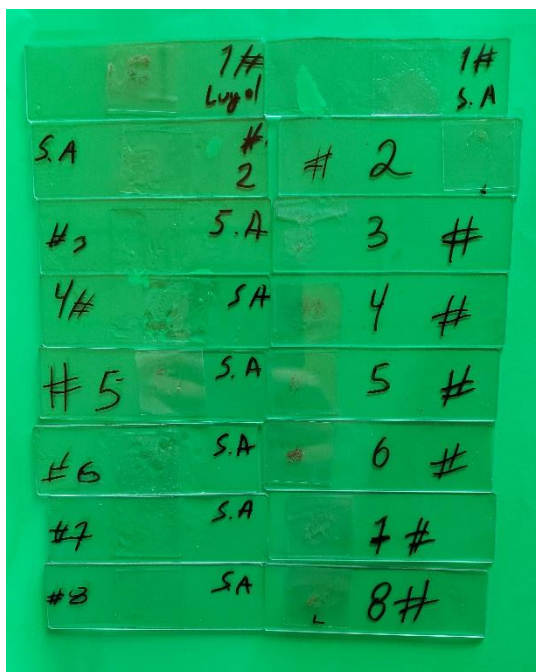 1#
Luyol
1#
S.A
S.A #
2
# 2
#3 S.A
3 #
4# SA
4 #
#5 S.A
5 #
#6 S.A
6 #
#7 S.A
7 #
#8 S.A
L 8#